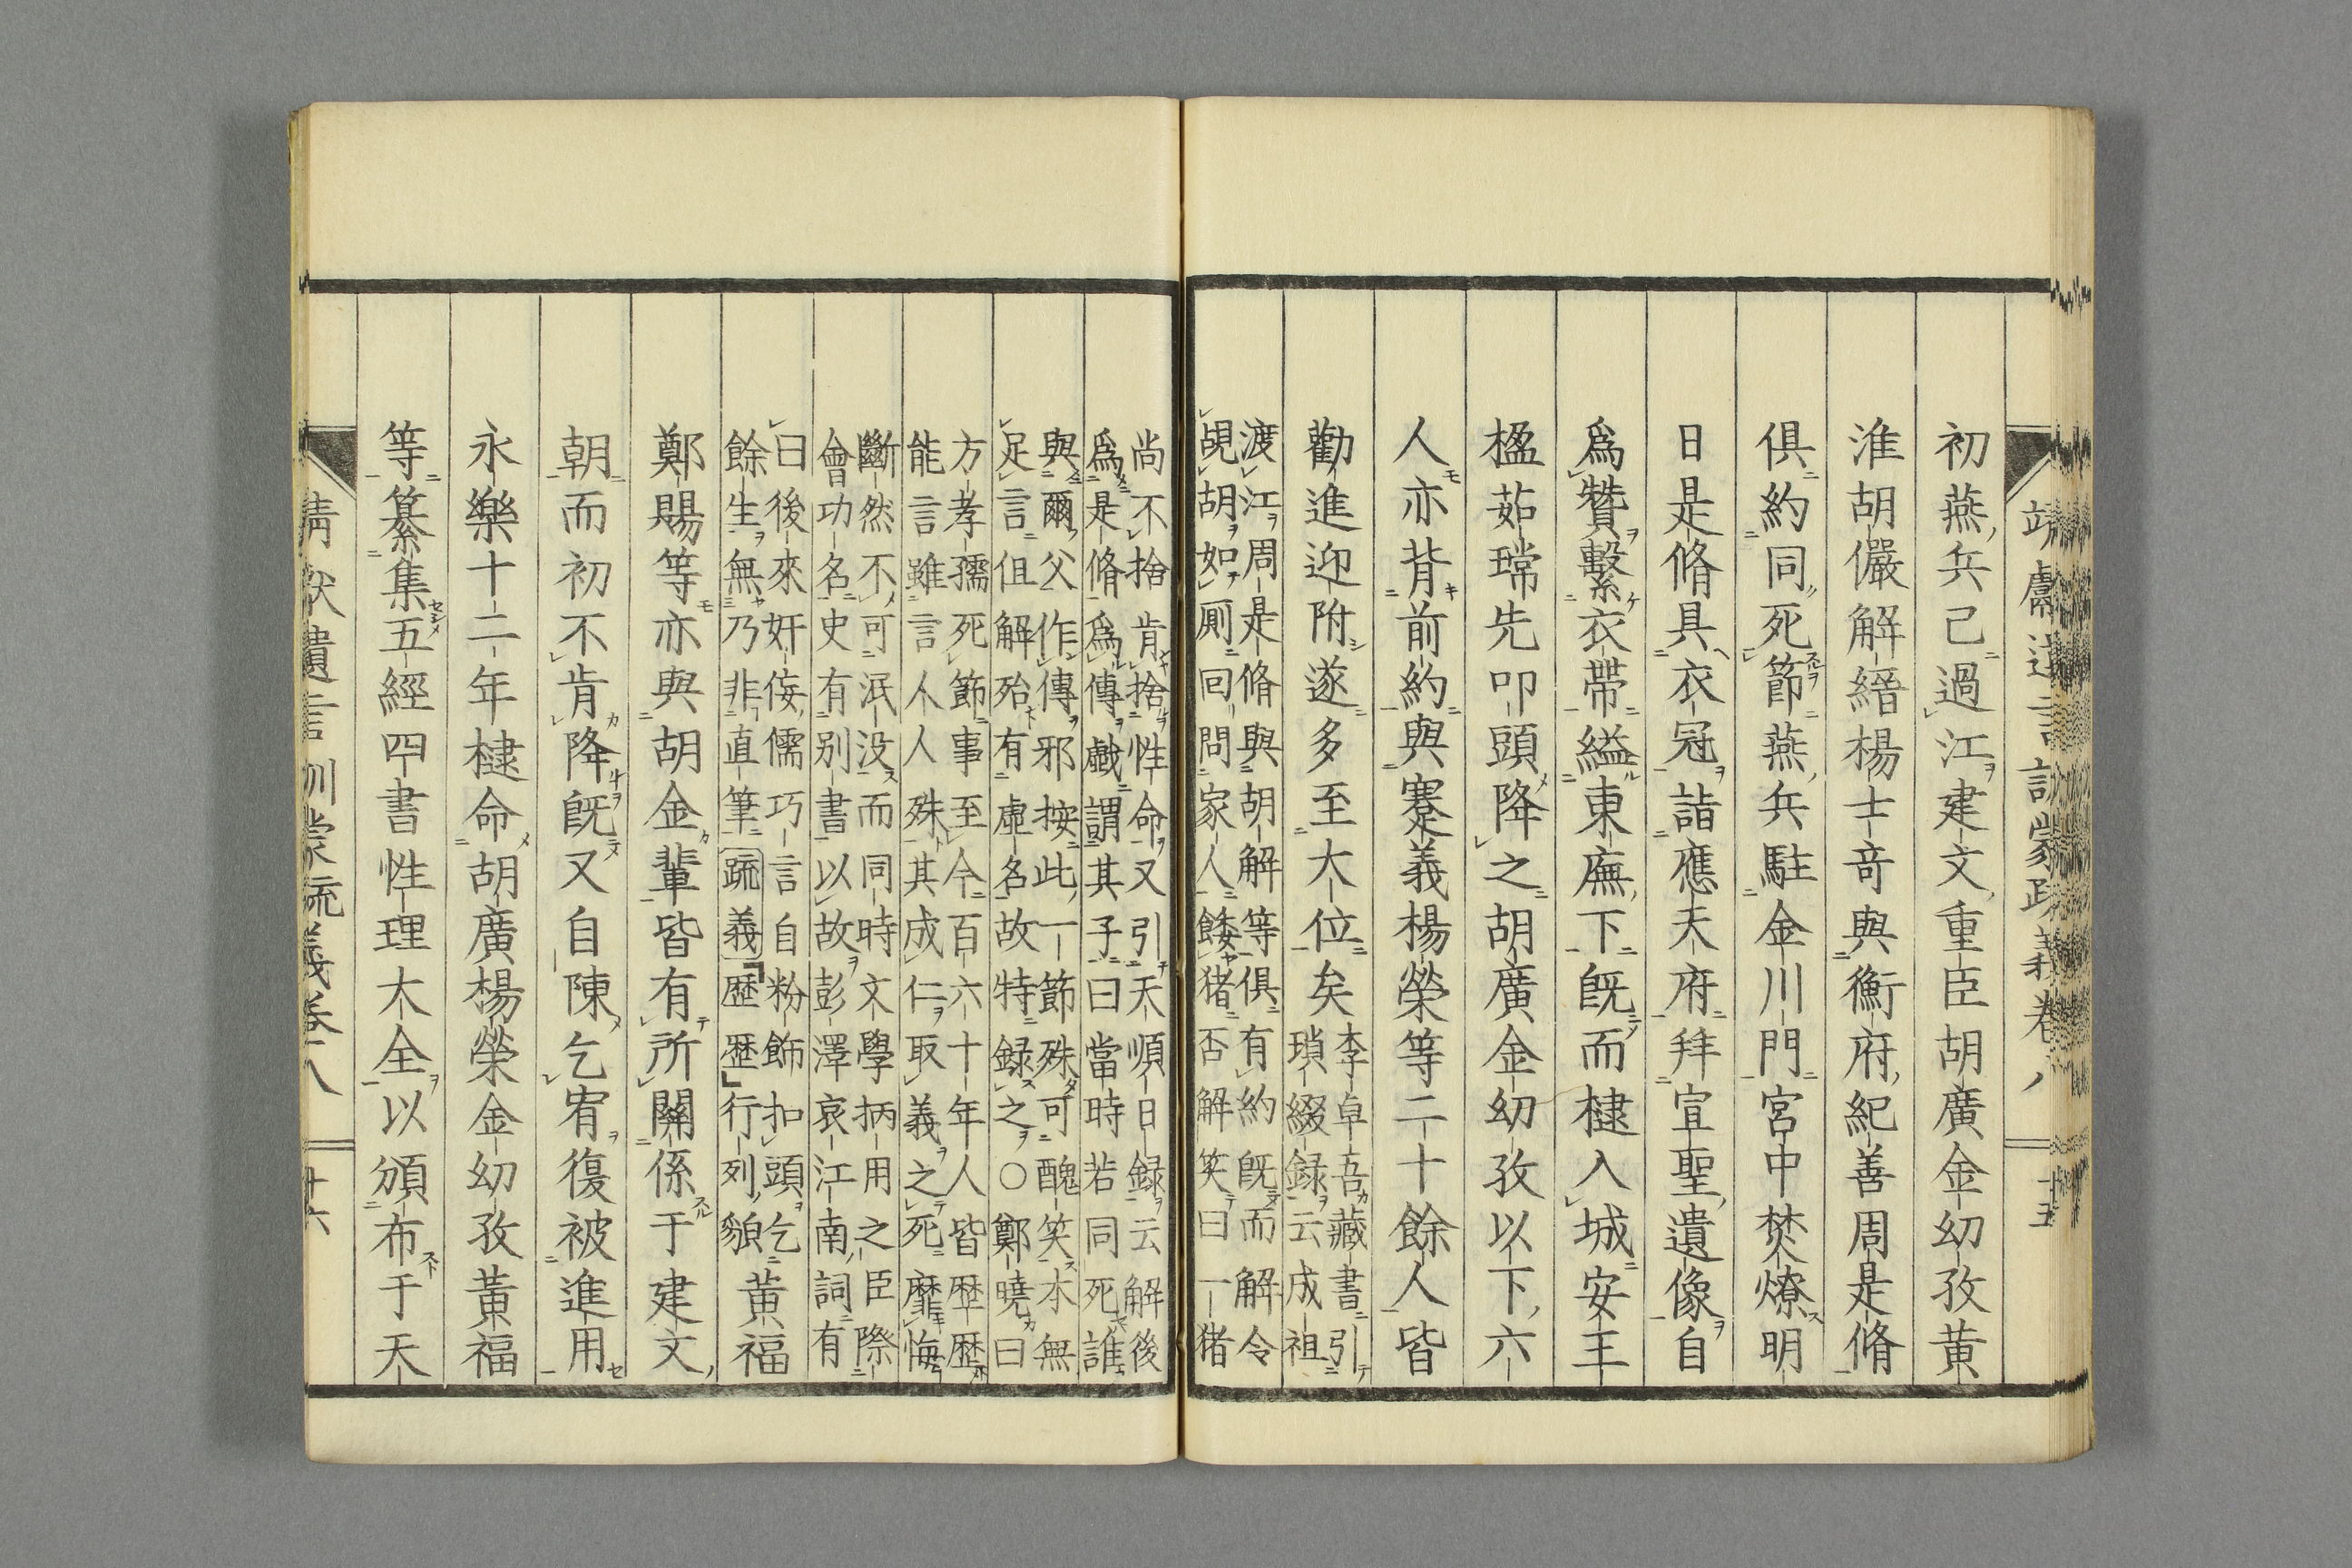 初燕兵已過江建文重臣胡廣金幼孜黃
淮胡儼解縉楊士奇與衡府紀善周是脩
俱約同死節燕兵駐金川門宮中焚燎明
日是脩具衣冠詣應天府拜宣聖遺像自
爲贊繫衣帶縊東廡下旣而棣入城安王
楹茹瑺先叩頭降之胡廣金幼孜以下六
人亦背前約與蹇義楊榮等二十餘人皆
勸進迎附遂多至大位矣
李卓吾藏書引
瑣綴録云成祖
渡江周是脩與胡解等俱有約旣而解令
覘胡如厠回問家人餧猪否解笑曰一猪
尚不捨肯捨性命又引天順日録云解後
爲是脩爲傳戲謂其子曰當時若同死誰
與爾父作傳邪按此一節殊可醜笑本無
足言但解殆有虛名故特録之○鄭曉曰
方孝孺死節事至今百六十年人皆歷歷
能言雖言人人殊其成仁取義之死靡悔
斷然不可泯没而同時文學柄用之臣際
會功名史有别書以故彭澤哀江南詞有
曰後來奸侫儒巧言自粉飾扣頭乞
餘生無乃非直筆疏義歷歷行列貌
黃福
鄭賜等亦與胡金輩皆有所關係于建文
朝而初不肯降旣又自陳乞宥復被進用
永樂十二年棣命胡廣楊榮金幼孜黃福
等纂集五經四書性理大全以頒布于天
靖獻遺言訓蒙疏義卷八
十五
靖獻遺言訓蒙疏義卷八
十六